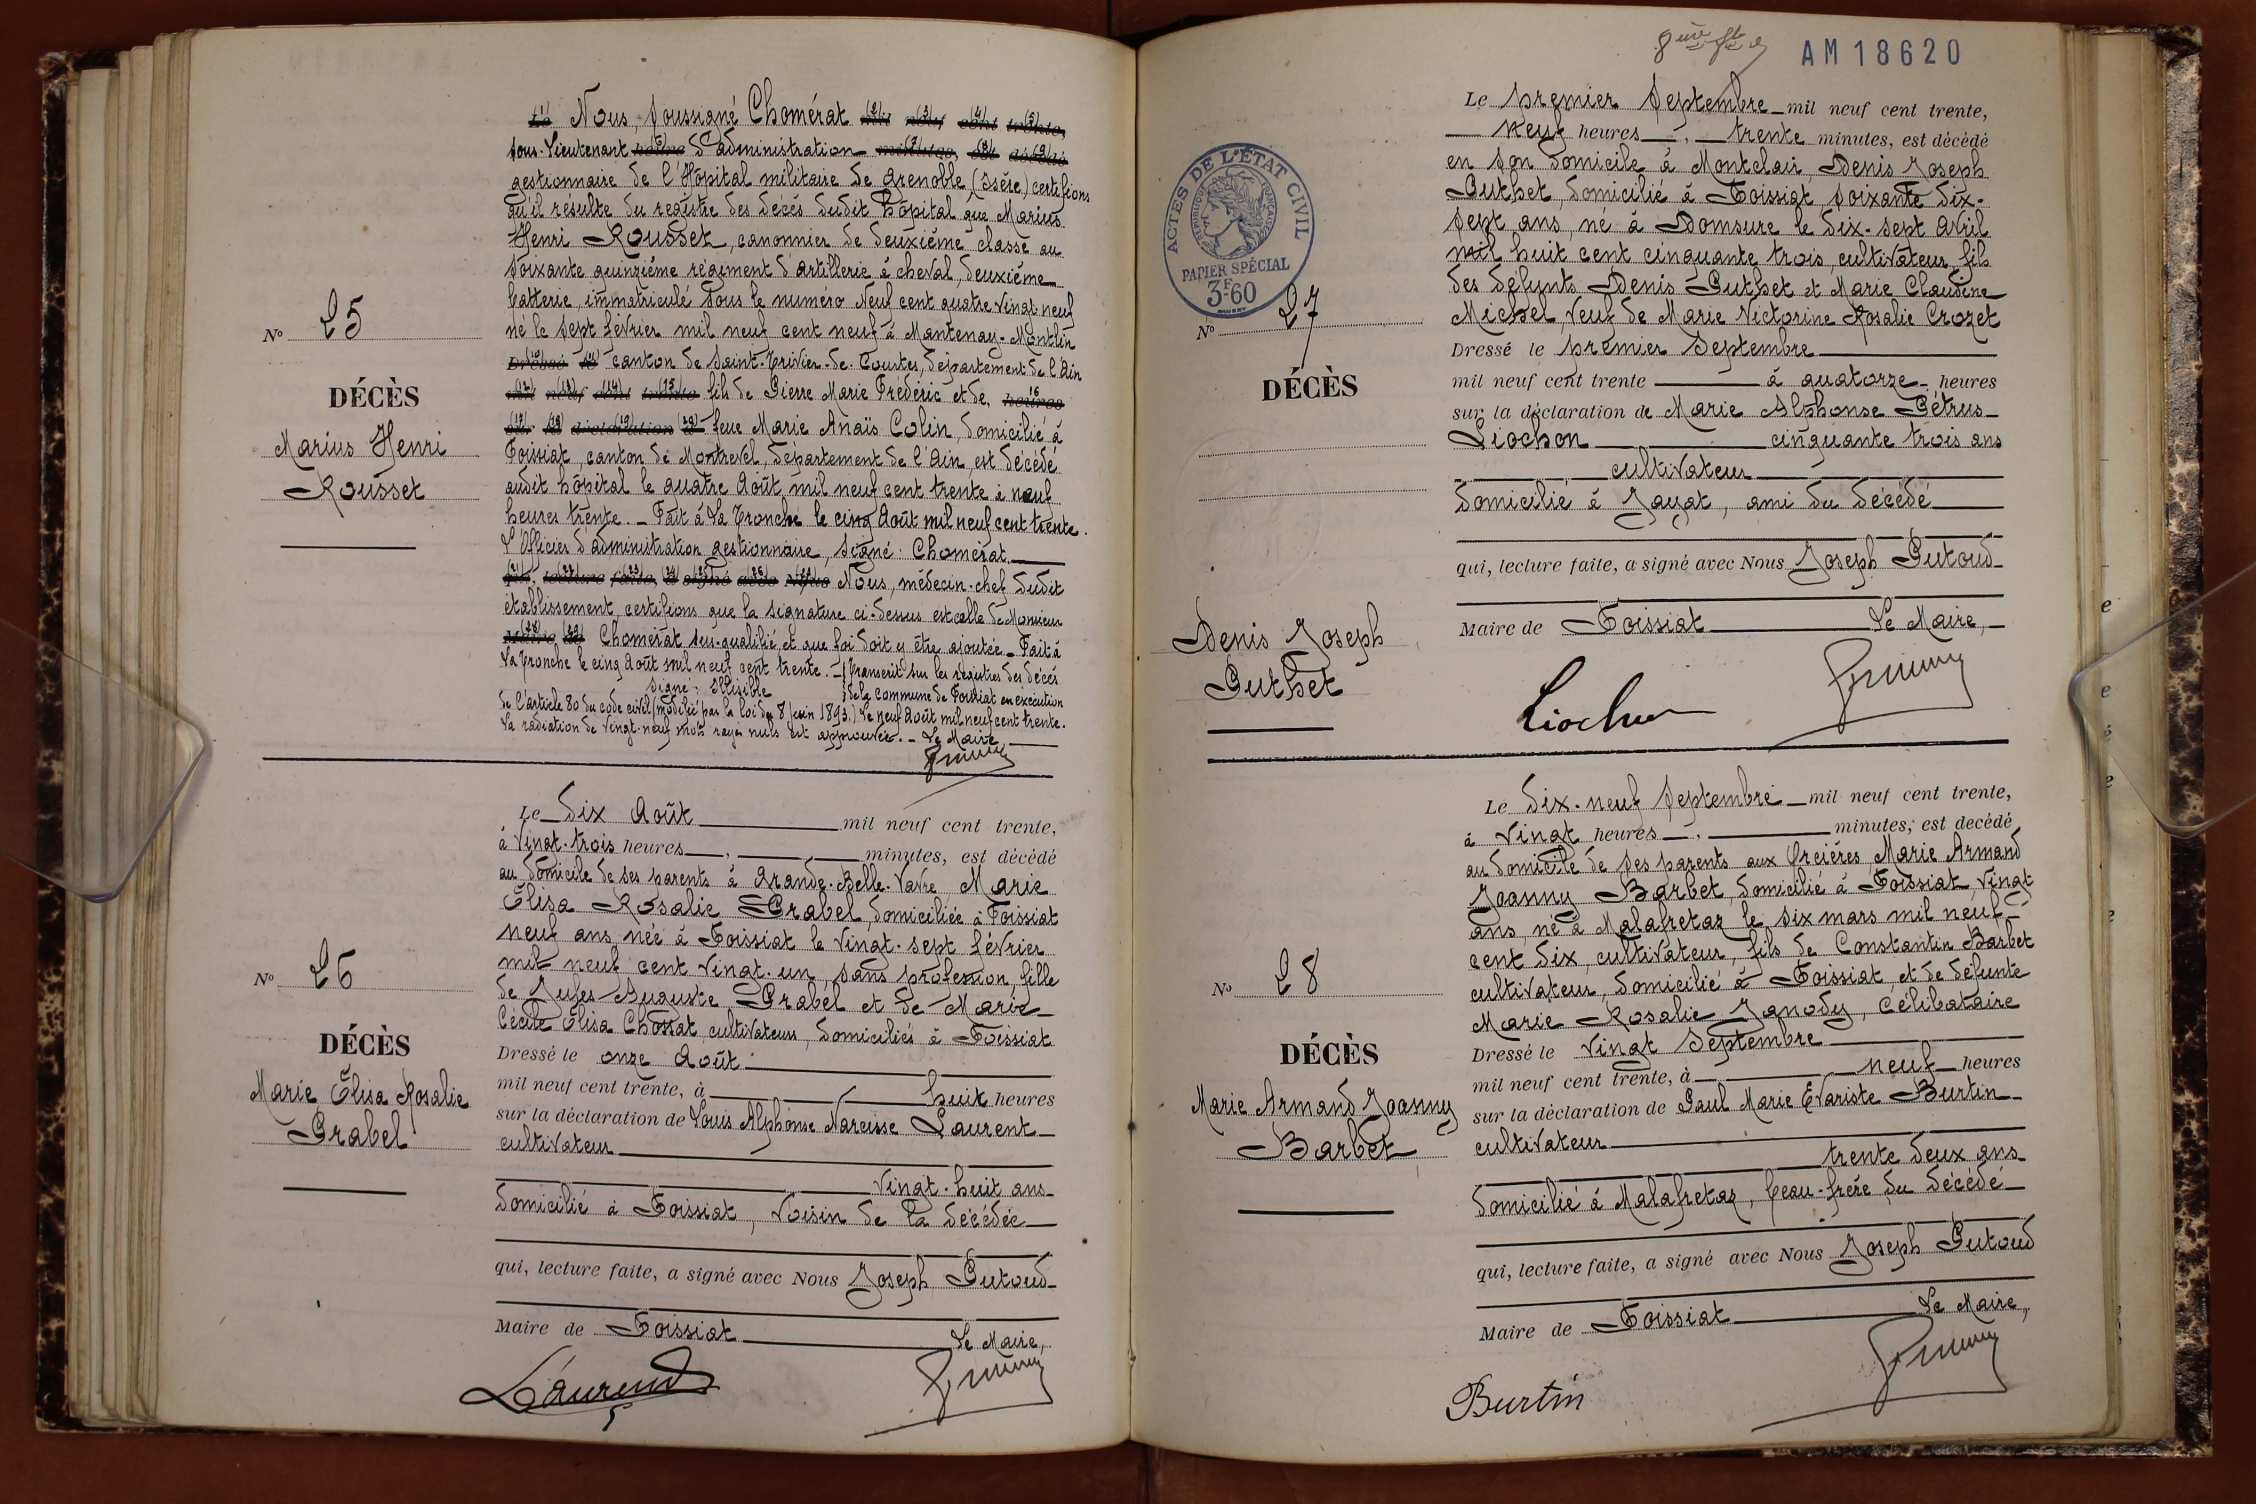 Nous, soussigné Chomérat
sous-Lieutenant d'administration
gestionnaire de l'Hôpital militaire de Grenoble, (Isère) certifions
qu'il résulte du registre des décés dudit hôpital que Marius
Henri Rousset, canonnier de deuxiéme classe au
soixante quinziéme régiment d'artillerie à cheval, deuxiéme
batterie, immatriculé sous le numéro neuf cent quatre vingt neuf
né le sept février mil neuf cent neuf à Mantenay-Montlin
canton de Saint-Trivier-de-Courtes, département de l'Ain
fils de Pierre Marie Frédéric et de
feue Marie Anaïs Colin, domicilié à
Foissiat, canton de Montrevel, département de l'Ain est décédé
audit hôpital le quatre Août mil neuf cent trente à neuf
heures trente. — Fait à La Tronche le cinq Août mil neuf cent trente.
L'Officier d'administration gestionnaire, signé: Chomérat
Nous, médecin-chef dudit
établissement, certifions que la signature ci-dessus est celle de Monsieur
Chomérat sus-qualifié, et que foi doit y être ajoutée. — Fait à
La Tronche le cinq Août mil neuf cent trente. — Transcrit sur les registres des décés
signé: Illisible de la commune de Foissiat en exécution
de l'article 80 du code civil (modifié par la loi du 8 juin 1893.) Le neuf Août mil neuf cent trente.
La radiation de vingt-neuf mots rayés nuls est approuvée. — Le Maire
No 25
DÉCÈS
Marius Henri
Rousset
Le dix Août mil neuf cent trente,
à vingt-trois heures, minutes, est décédé
au domicile de ses parents à Grande-Belle-Vavre Marie
Élisa Rosalie Prabel, domiciliée à Foissiat
neuf ans, née à Foissiat le vingt-sept février
mil neuf cent vingt-un, sans profession, fille
de Jules Auguste Prabel et de Marie
Cécile Élisa Chossat, cultivateurs, domiciliés à Foissiat
Dressé le onze Août
mil neuf cent trente, à huit heures
sur la déclaration de Louis Alphonse Narcisse Laurent
cultivateur
vingt-huit ans
domicilié à Foissiat, voisin de la décédée
qui, lecture faite, a signé avec Nous Joseph Putoud
Maire de Foissiat Le Maire,
Laurent
No 26
DÉCÈS
Marie Élisa Rosalie
Prabel
AM 18620
ACTES DE L'ÉTAT CIVIL
RÉPUBLIQUE FRANÇAISE
PAPIER SPÉCIAL
3F.60
Le premier Septembre mil neuf cent trente,
neuf heures, trente minutes, est décédé
en son domicile à Montclair, Denis Joseph
Puthet, domicilié à Foissiat, soixante dix-
sept ans, né à Domsure le dix-sept Avril
mil huit cent cinquante trois, cultivateur, fils
des défunts Denis Puthet et Marie Claudine
Michel, veuf de Marie Victorine Rosalie Crozet
Dressé le premier Septembre
mil neuf cent trente à quatorze heures
sur la déclaration de Marie Alphonse Pétrus
Liochon cinquante trois ans
cultivateur
domicilié à Jayat, ami du décédé
qui, lecture faite, a signé avec Nous Joseph Putoud
Maire de Foissiat Le Maire,
Liochon
No 27
DÉCÈS
Denis Joseph
Puthet
Le dix-neuf Septembre mil neuf cent trente,
à vingt heures, minutes, est decédé
au domicile de ses parents aux Greiéres, Marie Armand
Joanny Barbet, domicilié à Foissiat vingt
ans, né à Malafretaz le six mars mil neuf
cent dix, cultivateur, fils de Constantin Barbet
cultivateur, domicilié à Foissiat, et de défunte
Marie Rosalie Janody, célibataire
Dressé le vingt Septembre
mil neuf cent trente, à neuf heures
sur la déclaration de Paul Marie Évariste Burtin
cultivateur
trente deux ans
domicilié à Malafretaz, beau-frère du décédé
qui, lecture faite, a signé avec Nous Joseph Putoud
Maire de Foissiat Le Maire,
Burtin
No 28
DÉCÈS
Marie Armand Joanny
Barbet